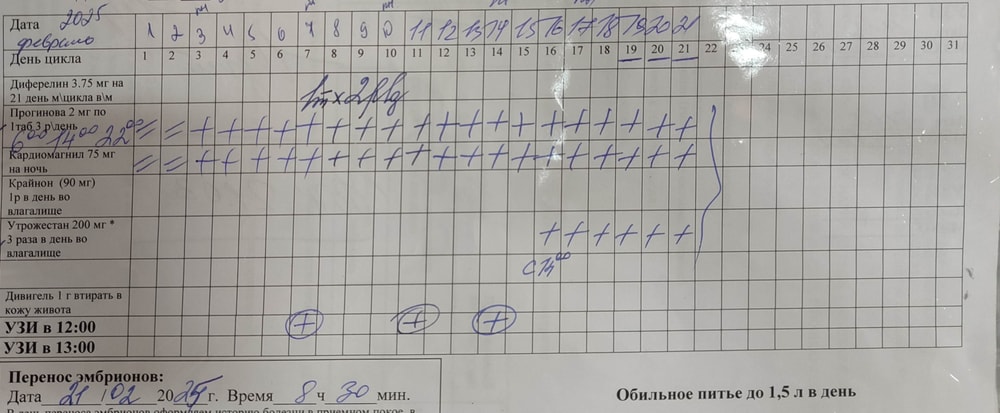 Дата 2025
февраль 1 2 3 4 5 6 7 8 9 10 11 12 13 14 15 16 17 18 19 20 21
День цикла 1 2 3 4 5 6 7 8 9 10 11 12 13 14 15 16 17 18 19 20 21 22 23 24 25 26 27 28 29 30 31
Диферелин 3.75 мг на
21 день м\цикла в\м
Прогинова 2 мг по
1таб 3 р\день + + + + + + + + + + + + + + + + + + +
6 00 14 00 22 00 = =
Кардиомагнил 75 мг = = + + + + + + + + + + + + + + + + + + +
на ночь
Крайнон (90 мг)
1р в день во
влагалище
Утрожестан 200 мг *
3 раза в день во + + + + + +
влагалище
с 14 00
Дивигель 1 г втирать в
кожу живота
УЗИ в 12:00 + + +
УЗИ в 13:00
Перенос эмбрионов:
Дата 21 / 02 2025 г. Время 8 ч 30 мин.
Обильное питье до 1,5 л в день